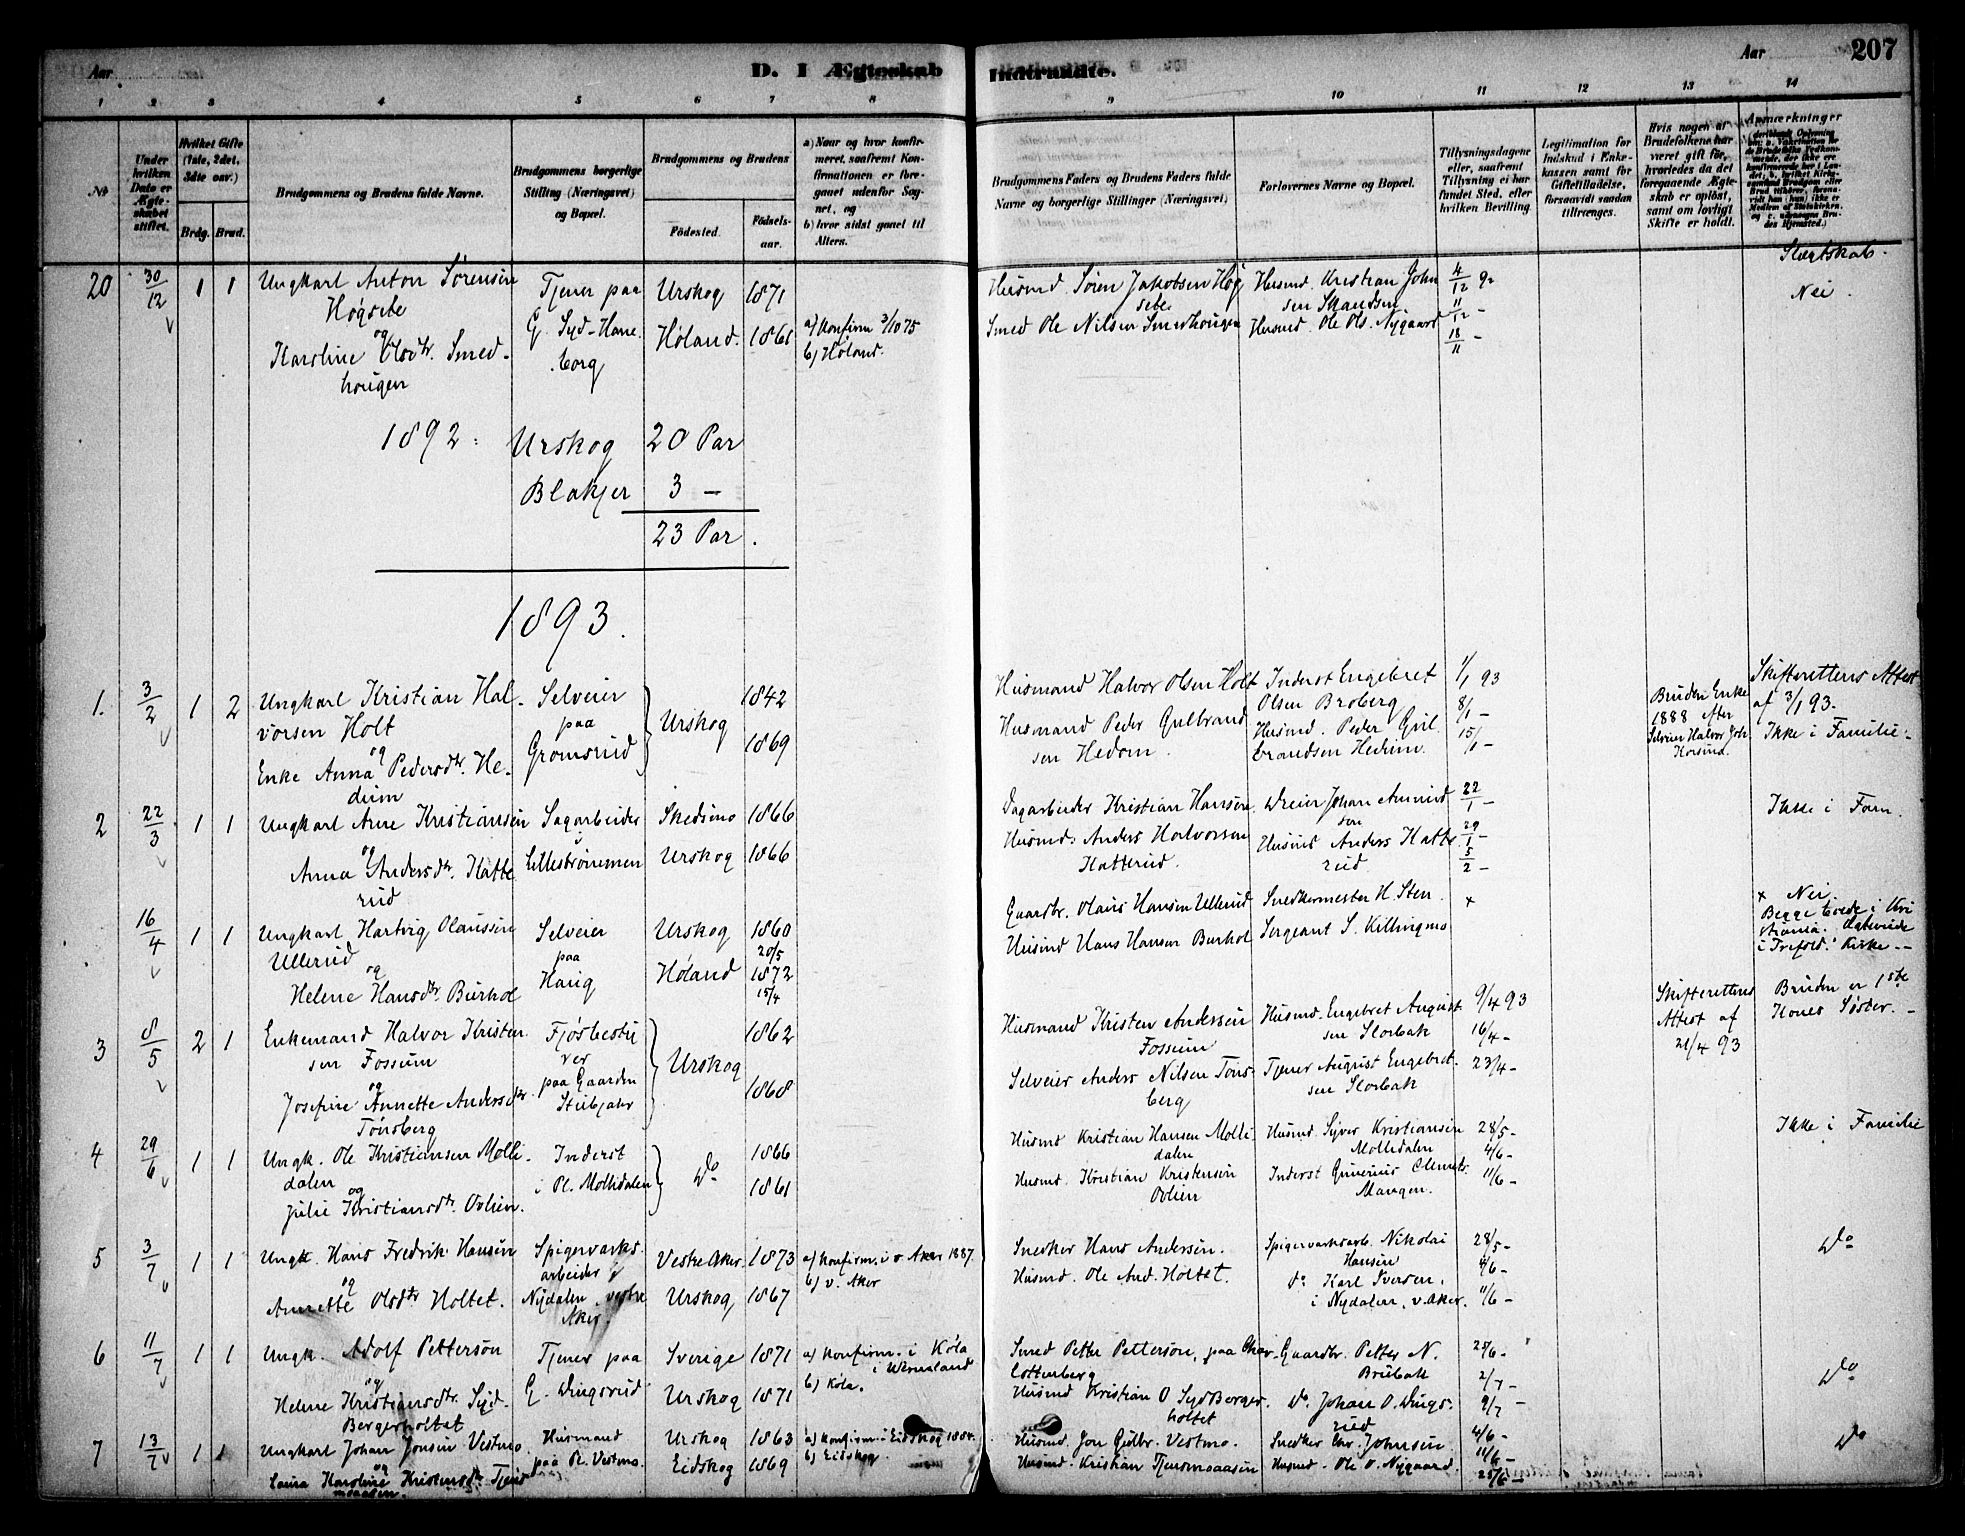 Aar
D. I Ægteskab Indtraadte.
Aar
207
1 2 3 4 5 6 7 8 9 10 11 12 13 14
No
Under hvilken Dato er Ægteskabet stiftet.
Hvilket Gifte (1ste, 2det, 3die osv.)
Brdg. Brud.
Brudgommens og Brudens fulde Navne.
Brudgommens borgerlige Stilling (Næringsvei) og Bopæl.
Brudgommens og Brudens
Födested.
Födsels-aar.
a) Naar og hvor konfirmeret, saafremt Konfirmationen er foregaaet udenfor Sognet, og
b) hvor sidst gaaet til Alters.
Brudgommens Faders og Brudens Faders fulde Navne og borgerlige Stillinger (Næringsvei)
Forlovernes Navne og Bopæl.
Tillysningsdagene eller, saafremt Tillysning ei har fundet Sted, efter hvilken Bevilling.
Legitimation for Indskud i Enkekassen samt for Giftetilladelse, forsaavidt saadan tiltrænges.
Hvis nogen af Brudefolkene har været gift för, hvorledes da det foregaaende Ægteskab er oplöst, samt om lovligt Skifte er holdt.
Anmærkninger
20 30/12 1 1 Ungkarl Anton Sørensen
Høgsete
og
Karoline Olsdtr. Smed-
hougen
Tjener paa
G. Syd-Hane-
borg
Urskog 1871
Høland. 1861
a) Konfirm 3/10 75
b) Høland.
Husmd. Søren Jakobsen Høg
sete
Smed Ole Nilsen Smedhougen
Husmd. Kristian John
sen Skandsen
Husmd. Ole Ols. Nygaard
4/12 92
11/12 -
18/11 -
Slegtskab.
Nei.
1892: Urskog 20 Par
Blakjer 3 -
23 Par.
1893.
1. 3/2 1 2 Ungkarl Kristian Hal-
vorsen Holt
og
Enke Anna Pedersdtr. He-
dum
Selveier
paa
Gromsrud
Urskog
1842
1869
Husmand Halvor Olsen Holt
Husmand Peder Gulbrand
sen Hedom.
Inderst Engebret
Olsen Broberg
Husmd. Peder Gul
brandsen Hedum.
1/1 93
8/1 -
15/1 -
Bruden Enke
1888 efter
Selveier Halvor
Skifterettens Attest
af 3/1 93.
Ikke i Familie.
2 22/3 1 1 Ungkarl Arne Kristiansen
og
Anna Andersdtr. Katte
rud
Sagarbeider
i
Lillestrømmen
Skedsmo 1866
Urskog 1866
Dagarbeider Kristian Hansen.
Husmd. Anders Halvorsen
Katterud.
Dreier Johan Amund
sen
Husmd Anders Katte
rud
22/1 -
29/1 -
5/2 -
Ikke i Fam.
16/4 1 1 Ungkarl Hartvig Olaussen
Ullerud
og
Helene Hansdtr. Burhol
Selveier
paa
Haug
Urskog 1860
20/5
Høland 1872
15/4
Gaardbr. Olaus Hansen Ullerud
Husmd Hans Hansen Burhol
Snedkermester H. Sten.
Sergeant S. Killingmo
x
x Nei.
Begge boede i Kri
stiania.
i Trefold. Kirke. -
3 8/5 2 1 Enkemand Halvor Kristen
sen Fossum
og
Josefine Annette Andersdtr
Tønsberg
Fjøsbesty
rer
paa Gaarden
Urskog
1862
1868
Husmand Kristen Andersen
Fossum
Selveier Anders Nilsen Tøns-
berg
Husmd. Engebret August
sen Slorbak
Tjener August Engebret-
sen Slorbak
9/4 93
16/4 -
23/4 -
Skifterettens
Attest af
21/4 93
Bruden er 1ste
Kones Søster. -
4 29/6 1 1 Ungk. Ole Kristiansen Molli-
dalen
og
Julie Kristiansdtr. Ovlien.
Inderst
i Pl. Mollidalen
Do
1866
1861
Husmd Kristian Hansen Molli
dalen
Husmd. Kristian Kristensen
Ovlien
Husmd. Syver Kristiansen
Mollidalen
Inderst Gunerius Clemets.
Mangen.
28/5 -
4/6 -
11/6 -
Ikke i Familie
5 3/7 1 1 Ungk. Hans Fredrik Hansen
og
Annette Olsdtr Holtet.
Spigerværks-
arbeider i
Nydalen, vestre
Aker.
Vestre Aker. 1873
Urskog 1867
a) Konfirm. i v Aker 1887.
b) v. Aker
Snedker Hans Andersen.
Husmd. Ole And. Holtet.
Spigerverksarb. Nikolai
Hansen
Do Karl Iversen,
i Nydalen, v. Aker.
28/5 -
4/6 -
11/6 -
Do
6 11/7 1 1 Ungk. Adolf Petterson
og
Helene Kristiansdtr. Syd-
Bergerholtet
Tjener paa
G. Dingsrud
Sverige 1871
Urskog 1871
a) Konfirm. i Køla
i Wermland
b) Køla.
Smed Petter Petterson, paa Char-
lottenberg
Husmd Kristian O Syd Berger-
holtet
Gaardbr. Petter N.
Brubak
Do. Johan O. Dings-
rud
25/6 -
2/7 -
9/7 -
Do
7 13/7 1 1 Ungkarl Johan Jonsen Vestmo
og
Laura Karoline Kristensdtr Tjens
moaasen.
Husmand
paa Pl. Vestmo.
Urskog 1863
Eidskog 1869
a) Konfirm. i Eidskog 1884.
b) Eidskog
Husmd. Jon Gulbr. Vestmo.
Husmd. Kristian Tjensmoaasen
Snedker Chr. Johnsen
Husmd. Ole O. Nygaard.
4/6 -
11/6 -
25/6 -
Do